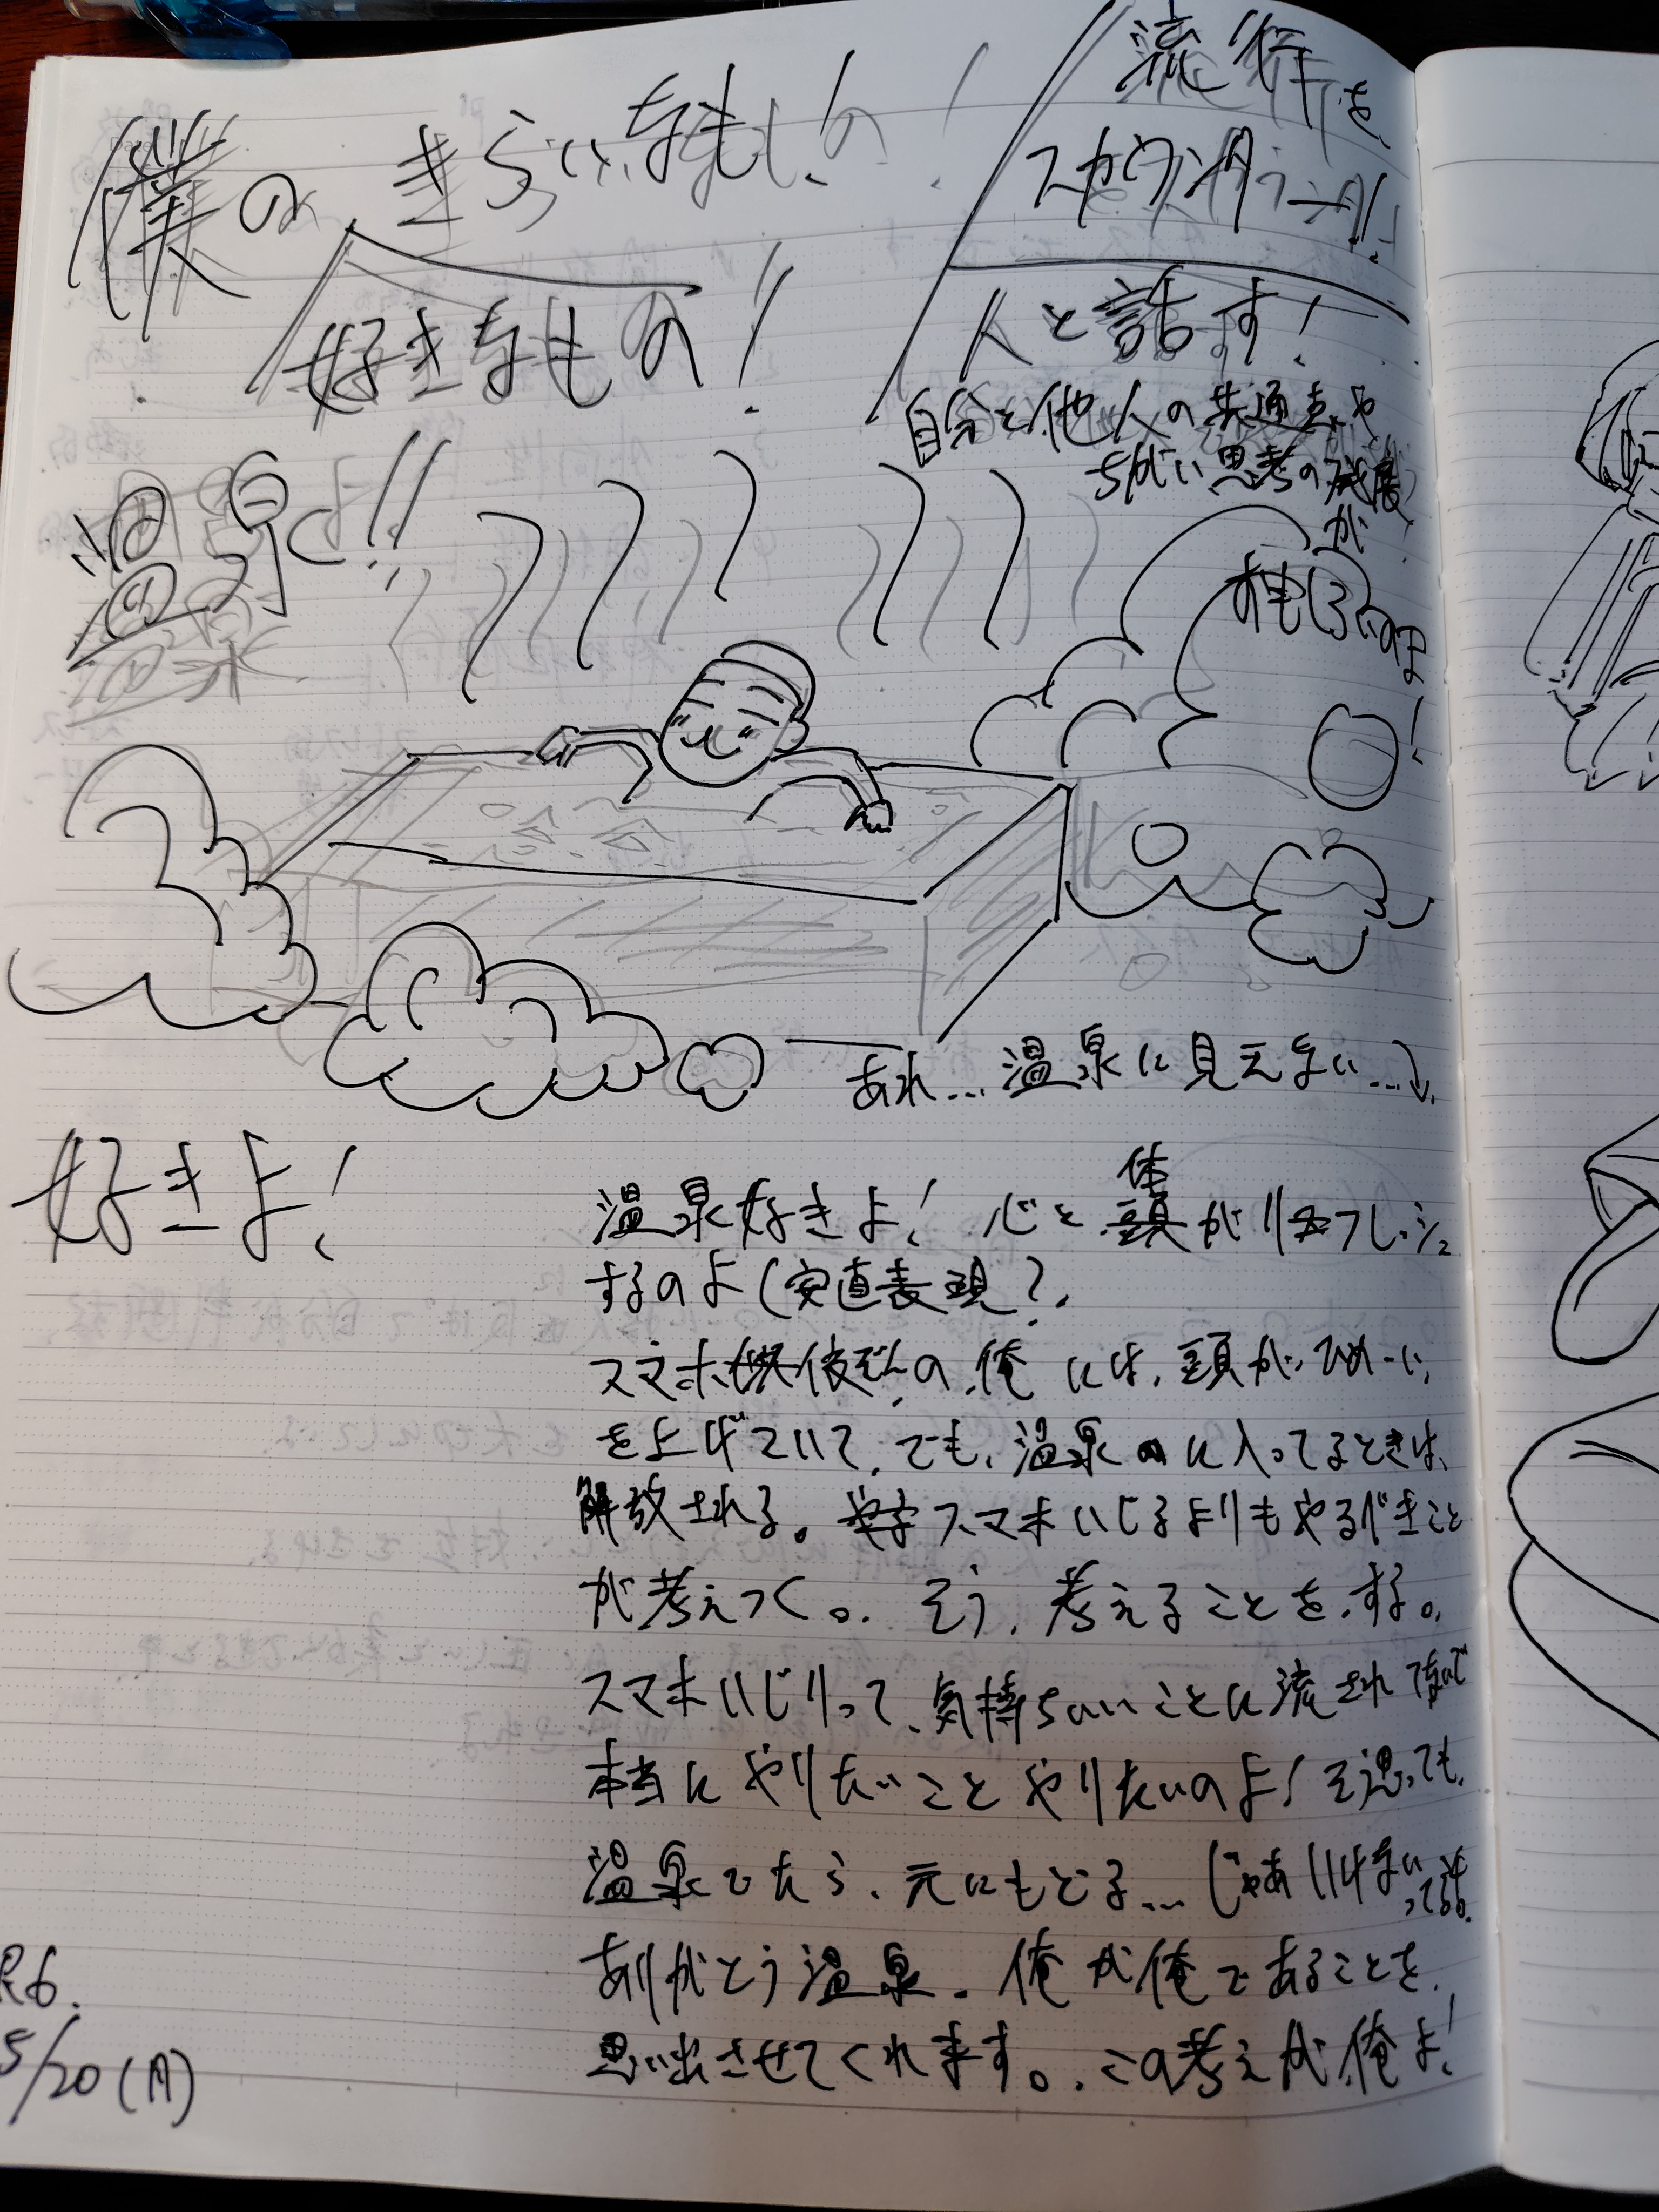 僕のきらいなもの!
好きなもの!
流行を
スカウンターラー!!
人と話す!
自分と他人の共通点や
ちがい思考の発展
が
おもしろいのよ!
温泉!!
あれ…温泉に見えない…
好きよ!
温泉好きよ! 心と体がリフレッシュ
するのよ(安直表現?
スマホ依ぞんの俺には、頭がひめい
を上げていて、でも、温泉に入ってるときは、
解放される。スマホいじるよりもやるべきこと
が考えつく。そう、考えることをする。
スマホいじりって、気持ちいいことに流されてないで
本当にやりたいことやりたいのよ!そ思っても、
温泉でたら、元にもどる…じゃあいけない
ありがとう温泉。俺が俺であることを
思い出させてくれます。この考えが俺よ!
R6.
5/20(月)